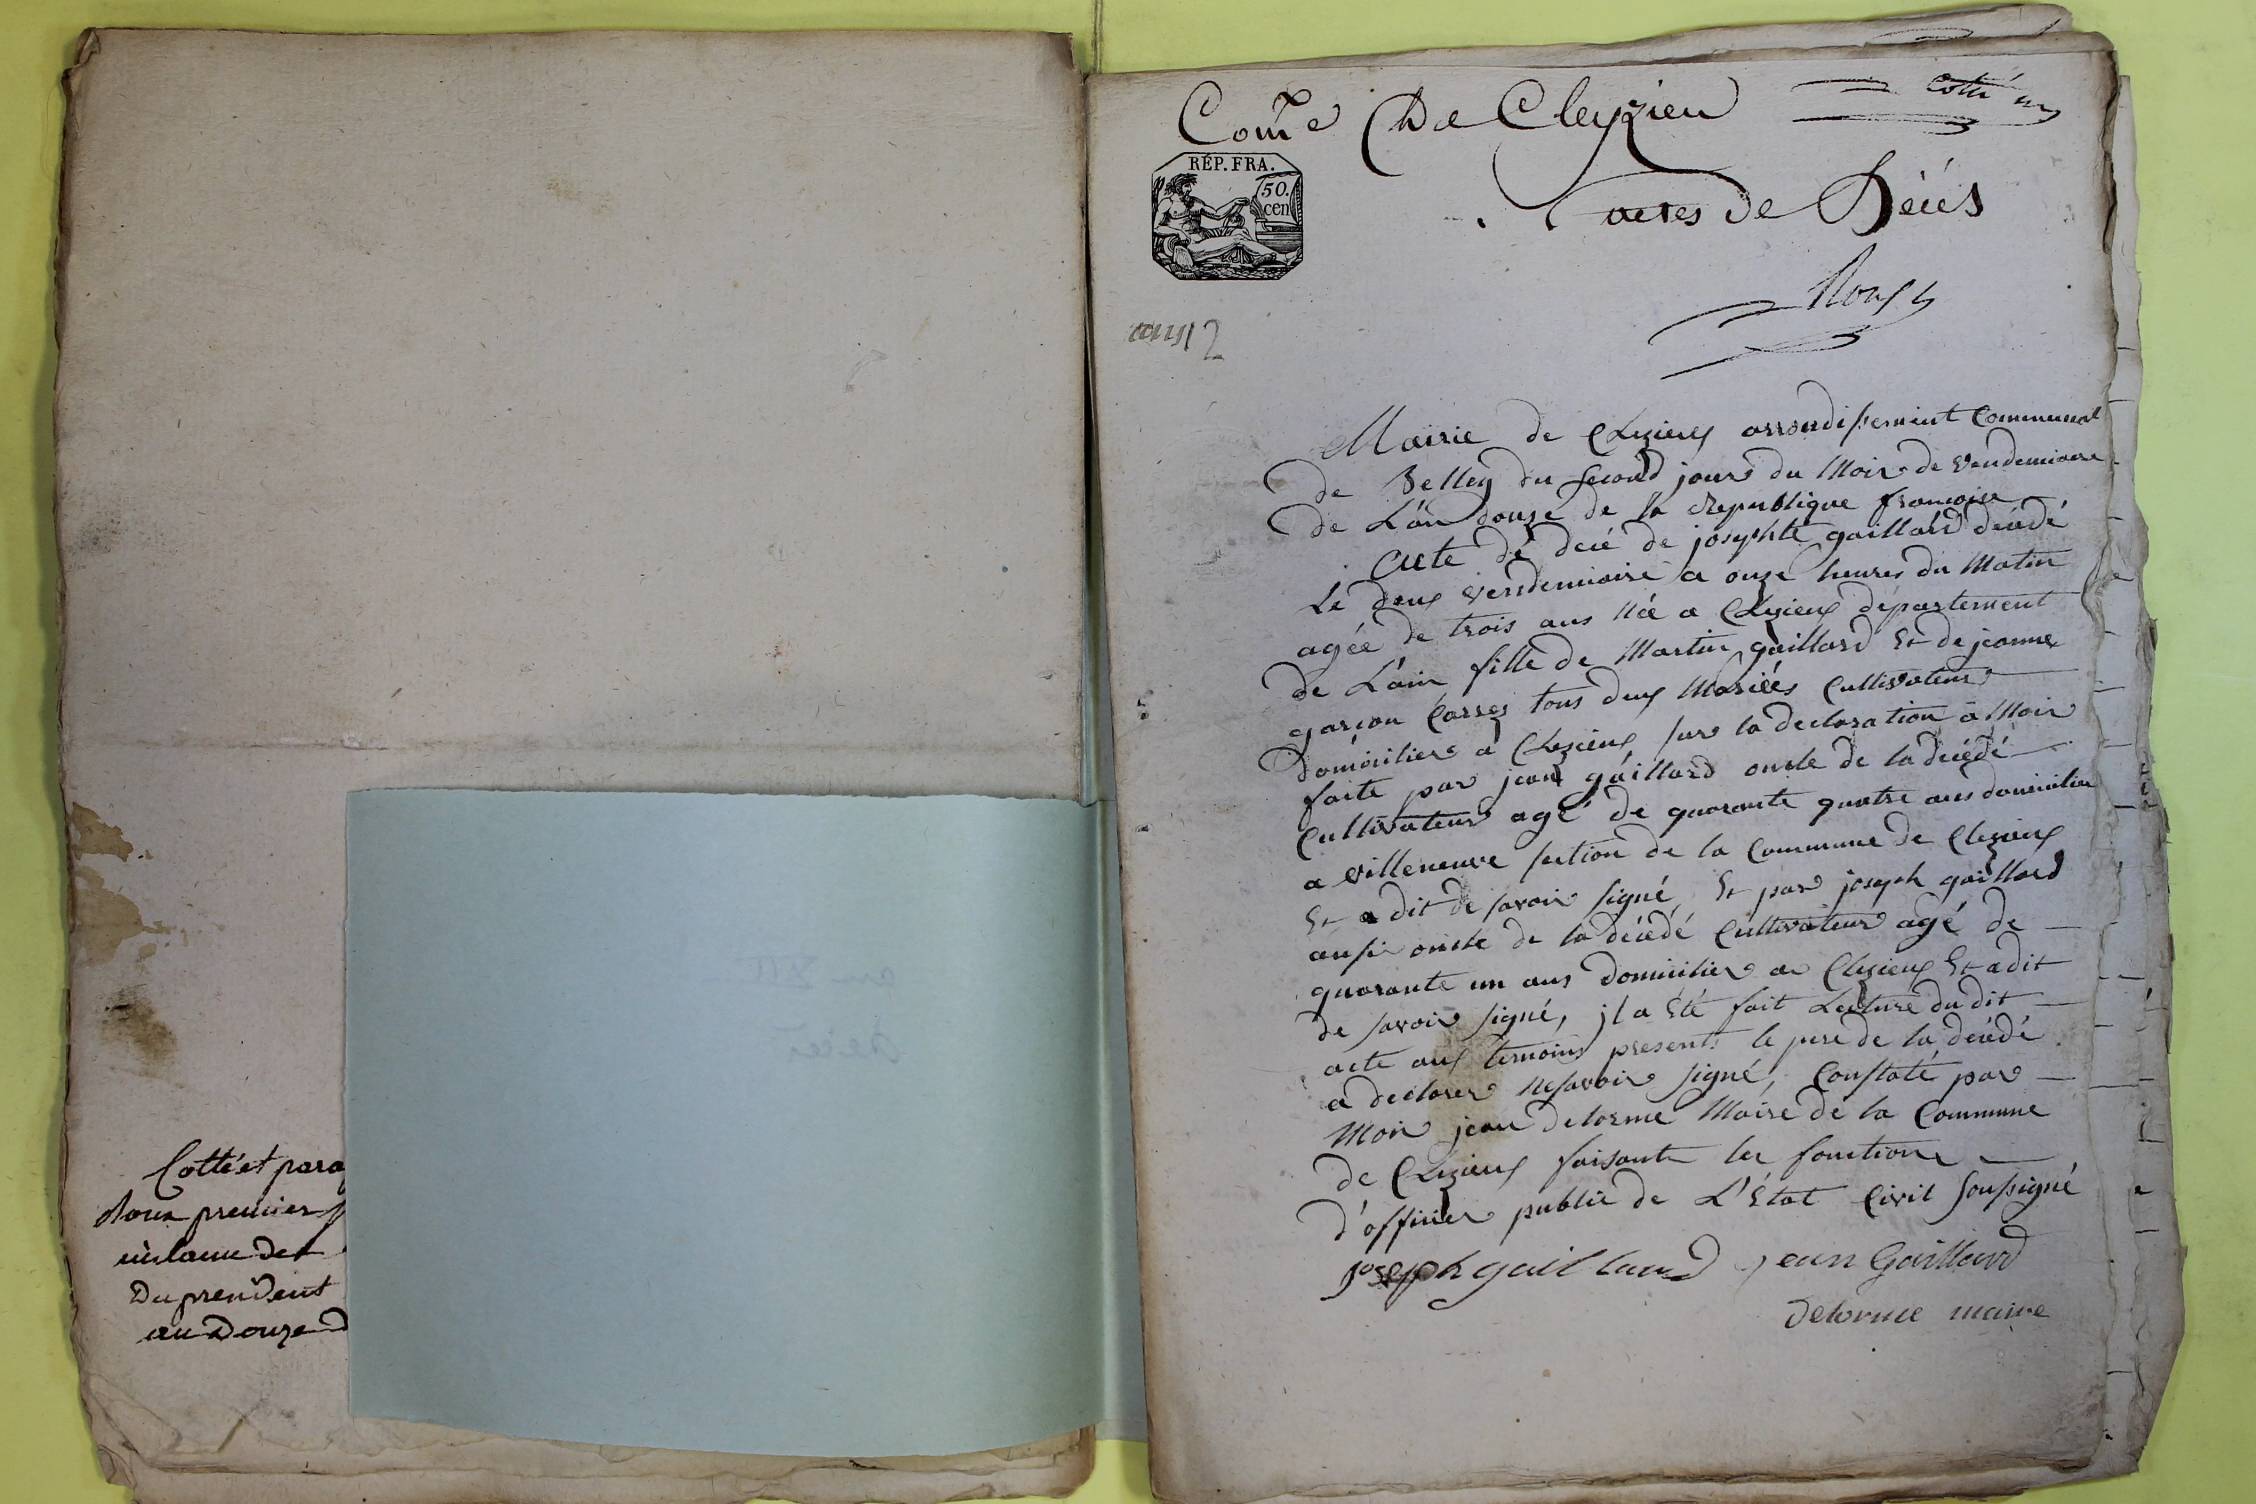 Cotté et para
Roux premier
instance de
Du president
au Douze D
Com̃e De Cleyzieu
Cotté un
RÉP. FRA.
50.
cen
actes de Décés
Roux
an 12
Mairie de Clezieux arrondissement Communal
de Belley du second jour du Mois de vendemiaire
de L'an douze de la Republique francoise
Acte de decé de josephte gaillard décédé
Le deux vendemiaire a onze heures du Matin
agée de trois ans Née a Clezieux département
de L'ain fille de Martin gaillard Et de jeanne
garcon Carres tous deux Mariées Cultivateur
domicilier a Clezieux, sur la declaration a Moir
faite par jean gaillard oncle de la décédé
Cultivateur agé de quarante quatre ans domicilier
a villeneuve section de la Commune de Clezieux
Et a dit de savoir signé Et par joseph gaillard
aussi oncle de la décédé Cultivateur agé de
quarante un ans domicilier a Clezieux Et a dit
de savoir signé, jl a Eté fait Lecture du dit
acte aux temoins present le pere de la décédé
a declarer Ne savoir signé, Constaté par
Moir jean delorme Maire de la Commune
de Clezieux faisant les fonction
d'officier public de L'Etat Civil soussigné
joseph gaillard jean Gaillard
delorme maire